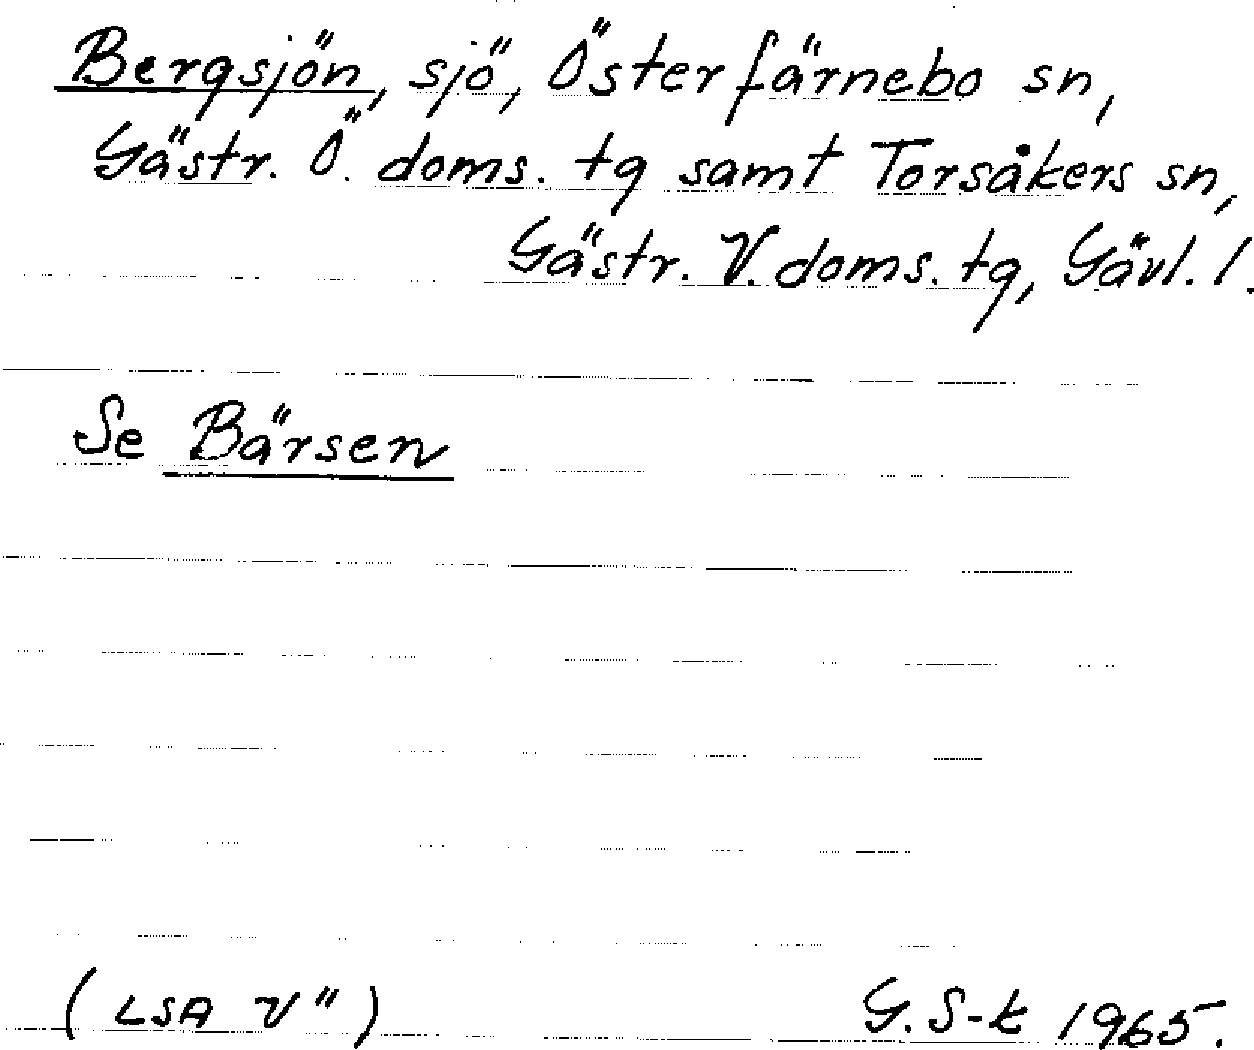 Bergsjön, sjö, Österfärnebo sn,
Gästr. Ö. doms. tg samt Torsåkers sn,
Gästr. V. doms. tg, Gävl. l.
Se Bärsen
(LSA V")
G. S-k 1965.